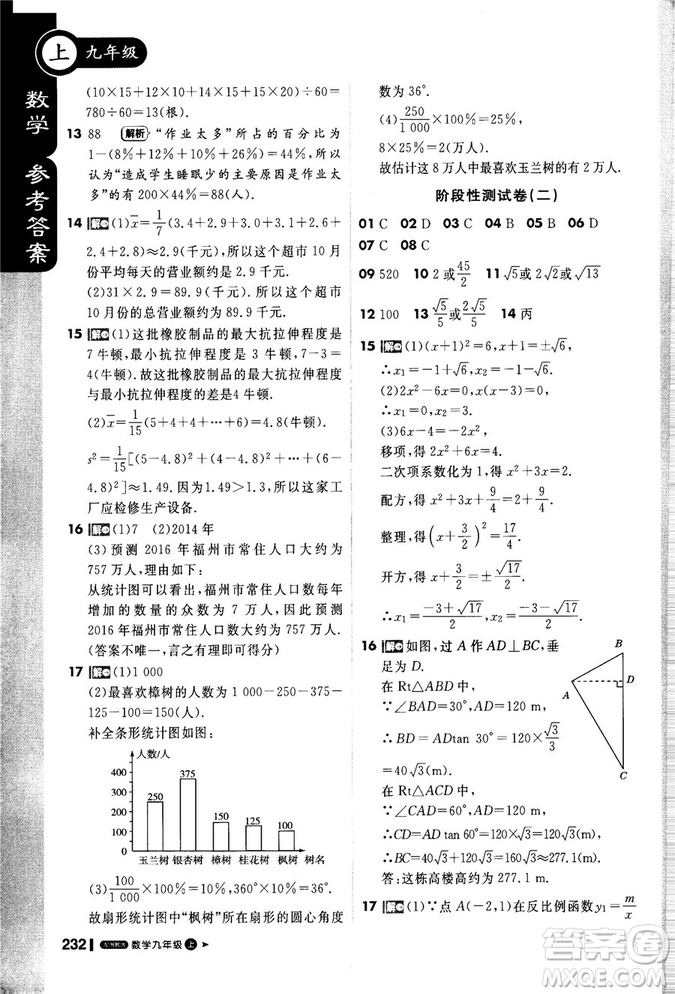 上 九年级
数学 参考答案
(10×15+12×10+15×20+14×15)÷60=
780÷60=13(根).
13 88 解析 “作业太多”所占的百分比为
1-(8%+12%+10%+26%)=44%,所以
认为“造成学生睡眠少的主要原因是作业太
多”的有200×44%=88(人).
14 解 (1)x̄=1/7(3.4+2.9+3.0+3.1+2.6+
2.4+2.8)≈2.9(千元),所以这个超市10月
份平均每天的营业额约是2.9千元.
(2)31×2.9=89.9(千元),所以这个超市
10月份的总营业额约为89.9千元.
15 解 (1)这批橡胶制品的最大抗拉伸程度是
7牛顿,最小抗拉伸程度是3牛顿,7-3=
4(牛顿).故这批橡胶制品的最大抗拉伸程度
与最小抗拉伸程度的差是4牛顿.
(2)x̄=1/15(5+4+4+…+6)=4.8(牛顿).
s²=1/15[(5-4.8)²+(4-4.8)²+…+(6-
4.8)²]≈1.49.因为1.49>1.3,所以这家工
厂应检修生产设备.
16 解 (1)7 (2)2014年
(3)预测2016年福州市常住人口大约为
757万人,理由如下:
从统计图可以看出,福州市常住人口每年
增加的数量的众数为7万人,由此可以预测
2016年福州市常住人口数大约为757万人.
(答案不唯一,言之有理即可)
17 解 (1)1 000
(2)最喜欢樟树的人数为1 000-250-375-
125-100=150(人).
补全条形统计图如图:
人数/人
400
300
200
100
0
250 375 150 125 100
玉兰树 银杏树 樟树 桂花树 枫树 树名
(3)100/1 000×100%=10%,360°×10%=36°.
故扇形统计图中“枫树”所在扇形的圆心角度
232 数学九年级 上
数为36°.
(4)250/1 000×100%=25%,
8×25%=2(万人).
故估计这8万人中最喜欢玉兰树的有2万人.
阶段性测试卷(二)
01 C 02 D 03 C 04 B 05 B 06 D
07 C 08 C
09 520 10 2或45/2 11 √5或2√2或√13
12 100 13 √5/5或2√5/5 14 丙
15 解 (1)(x+1)²=6,x+1=±√6,
∴x₁=-1+√6,x₂=-1-√6.
(2)2x²-6x=0,x(x-3)=0,
∴x₁=0,x₂=3.
(3)6x-4=-2x²,
移项,得2x²+6x=4,
二次项系数化为1,得x²+3x=2,
配方,得x²+3x+9/4=2+9/4,
整理,得(x+3/2)²=17/4,
开方,得x+3/2=±√17/2,
∴x₁=(-3+√17)/2,x₂=(-3-√17)/2.
16 解 如图,过A作AD⊥BC,垂
足为D.
在Rt△ABD中,
∵∠BAD=30°,AD=120米,
∴BD=ADtan 30°=120×√3/3
=40√3(米).
在Rt△ACD中,
∵∠CAD=60°,AD=120米,
∴CD=AD tan 60°=120×√3=120√3(米).
∴BC=40√3+120√3=160√3≈277.1(米).
答:这栋高楼约为277.1米.
B
A
D
C
17 解 (1)∵点A(-2,1)在反比例函数y₁=m/x
答案圈
MXQE.COM